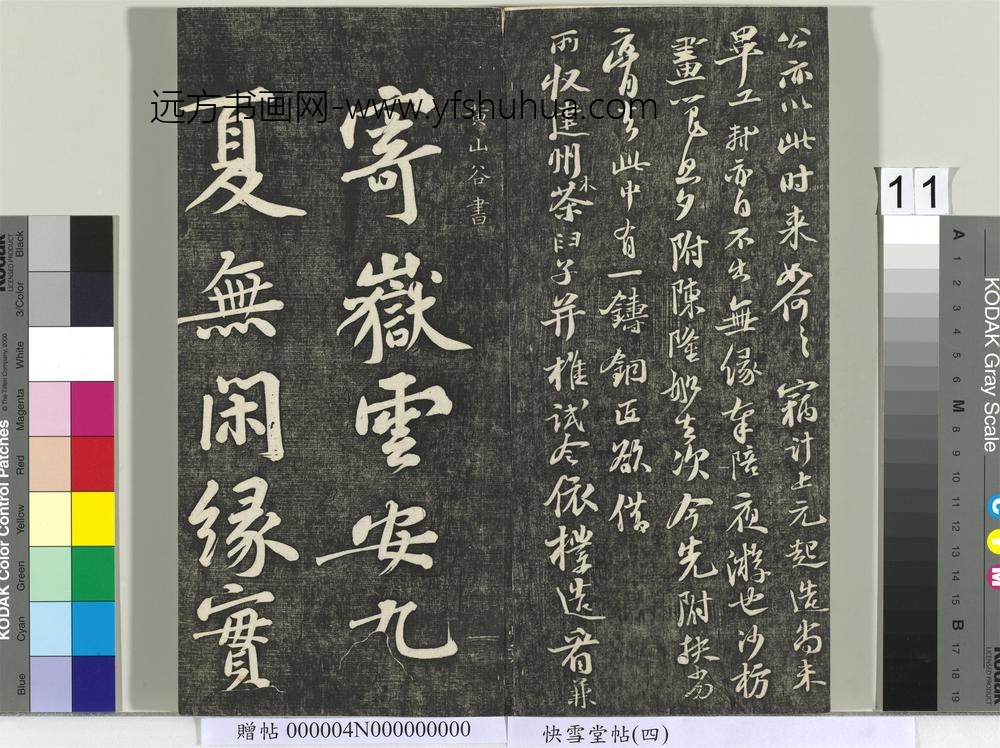 公亦以此时来如何々窃计上元起造尚未
畢工軒亦自不出無緣奉陪夜游也沙枋
畫籠旦夕附陳隆船去次今先附扶劣
膏去此中有一鑄銅匠欲借
所收建州木茶臼子并椎試令依樣造看兼
黄山谷書
寄嶽雲安九
夏無閑緣實
远方书画网-www.yfshuhua.com
11
贈帖 000004N000000000
快雪堂帖(四)
KODAK Color Control Patches
© The Tiffen Company, 2000
Kodak
LICENSED PRODUCT
Blue
Cyan
Green
Yellow
Red
Magenta
White
3/Color
Black
KODAK Gray Scale
A 1 2 3 4 5 6 M 8 9 10 11 12 13 14 15 B 17 18 19
C
Y
M
Kodak
LICENSED PRODUCT